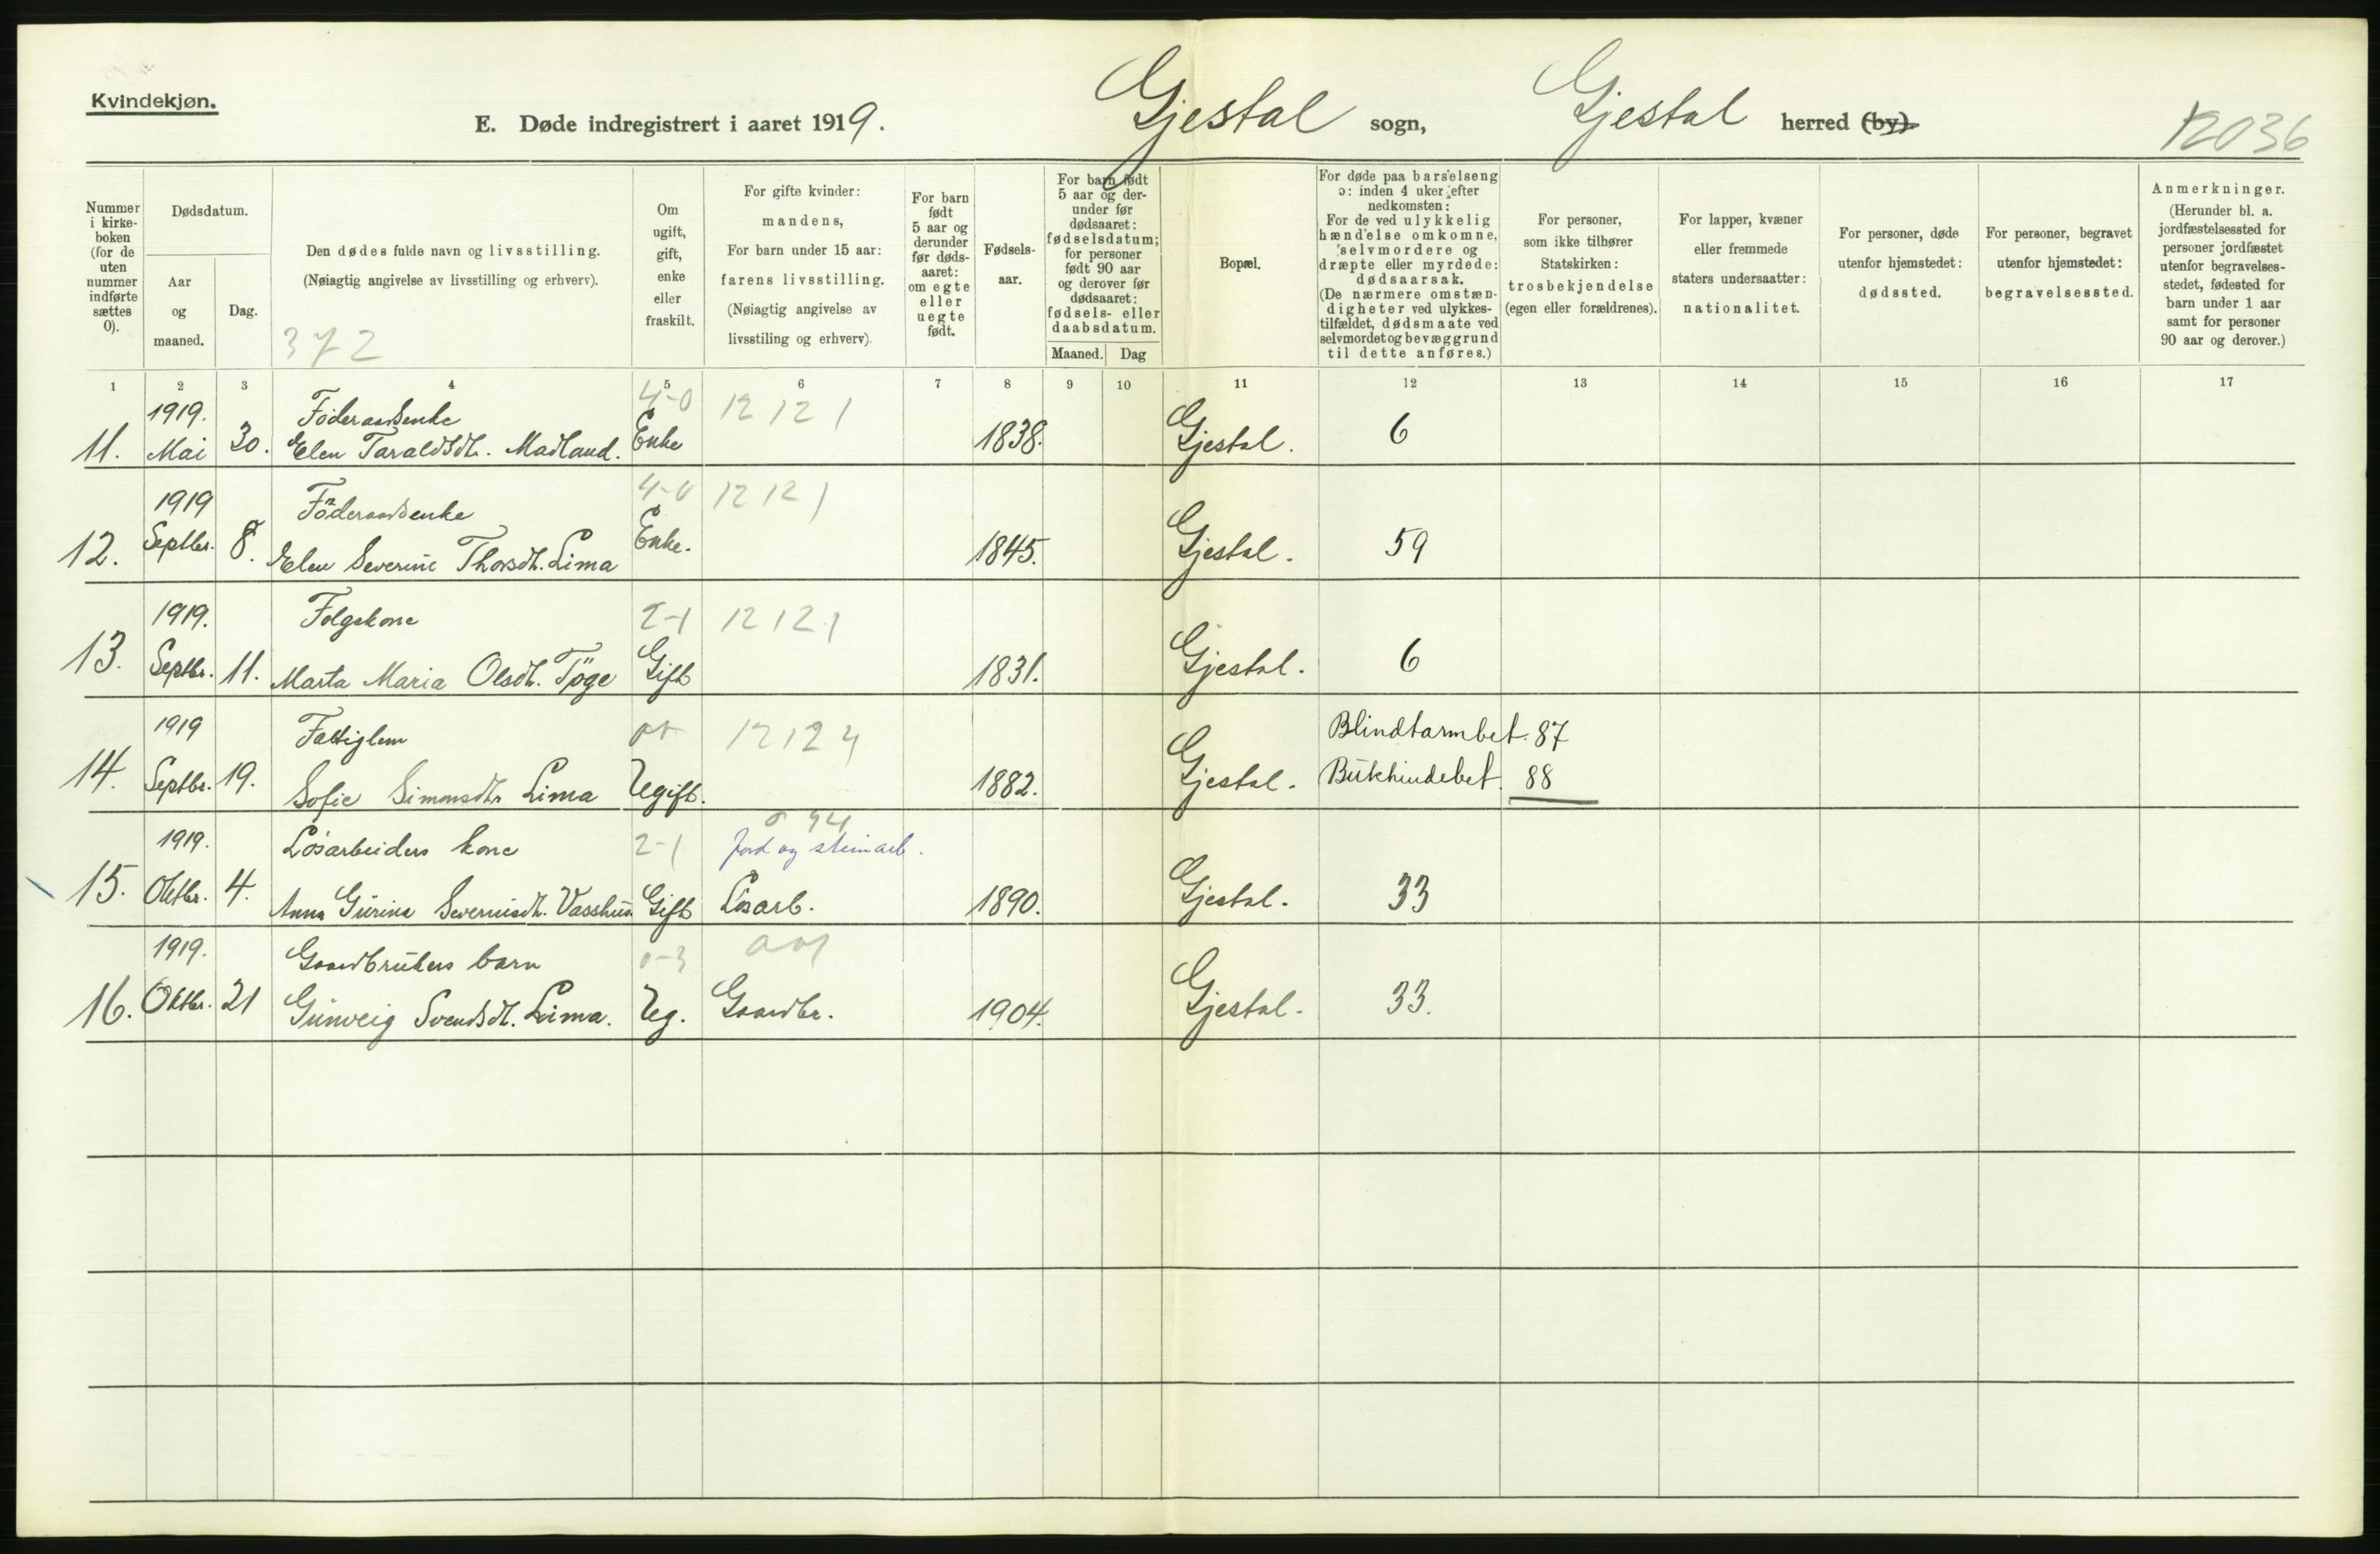 Kvindekjøn.
E. Døde indregistrert i aaret 1919. Gjestal sogn, Gjestal herred (by).
12036
Nummer i kirkeboken (for de uten nummer indførte sættes 0).
Dødsdatum.
Aar og maaned.
Dag.
Den dødes fulde navn og livsstilling.
(Nøiagtig angivelse av livsstilling og erhverv).
372
Om ugift, gift, enke eller fraskilt.
For gifte kvinder:
mandens,
For barn under 15 aar:
farens livsstilling.
(Nøiagtig angivelse av
livsstiling og erhverv).
For barn født 5 aar og derunder før dødsaaret: om egte eller uegte født.
Fødsels-
aar.
For barn født 5 aar og derunder før dødsaaret: fødselsdatum; for personer født 90 aar og derover før dødsaaret: fødsels- eller daabsdatum.
Maaned. Dag
Bopæl.
For døde paa barselseng ɔ: inden 4 uker efter nedkomsten:
For de ved ulykkelig hændelse omkomne, selvmordere og dræpte eller myrdede: dødsaarsak.
(De nærmere omstændigheter ved ulykkestilfældet, dødsmaate ved selvmordet og bevæggrund til dette anføres.)
For personer, som ikke tilhører Statskirken: trosbekjendelse (egen eller forældrenes).
For lapper, kvæner eller fremmede staters undersaatter: nationalitet.
For personer, døde utenfor hjemstedet: dødssted.
For personer, begravet utenfor hjemstedet: begravelsessted.
Anmerkninger.
(Herunder bl. a. jordfæstelsessted for personer jordfæstet utenfor begravelsesstedet, fødested for barn under 1 aar samt for personer 90 aar og derover.)
1 2 3 4 5 6 7 8 9 10 11 12 13 14 15 16 17
1919. Föderaadsenke 4-0 12 12 1
11. Mai 30. Elen Taraldsdtr. Madland. Enke 1838. Gjestal. 6
1919 Föderaadsenke 4-0 12 12 1
12. Septbr. 8. Elen Severine Thorsdtr. Lima Enke. 1845. Gjestal. 59
1919. Folgekone 2-1 12 12 1
13. Septbr. 11. Marta Maria Olsdtr. Töge Gift 1831. Gjestal. 6
1919 Fattiglem 12 12 4 Blindtarmbet. 87
14. Septbr. 19. Sofie Simonsdtr Lima Ugift. 1882. Gjestal. Bukhindebet. 88
1919. Lösarbeiders kone 2-1 Jord og steinarb.
15. Oktbr. 4. Anna Gurina Severinsdtr. Vasshus Gift Lösarb. 1890. Gjestal. 33
1919. Gaardbrukers barn 0-3
16. Oktbr. 21 Gunveig Svendsdt. Lima. Ug. Gaardbr. 1904. Gjestal. 33.